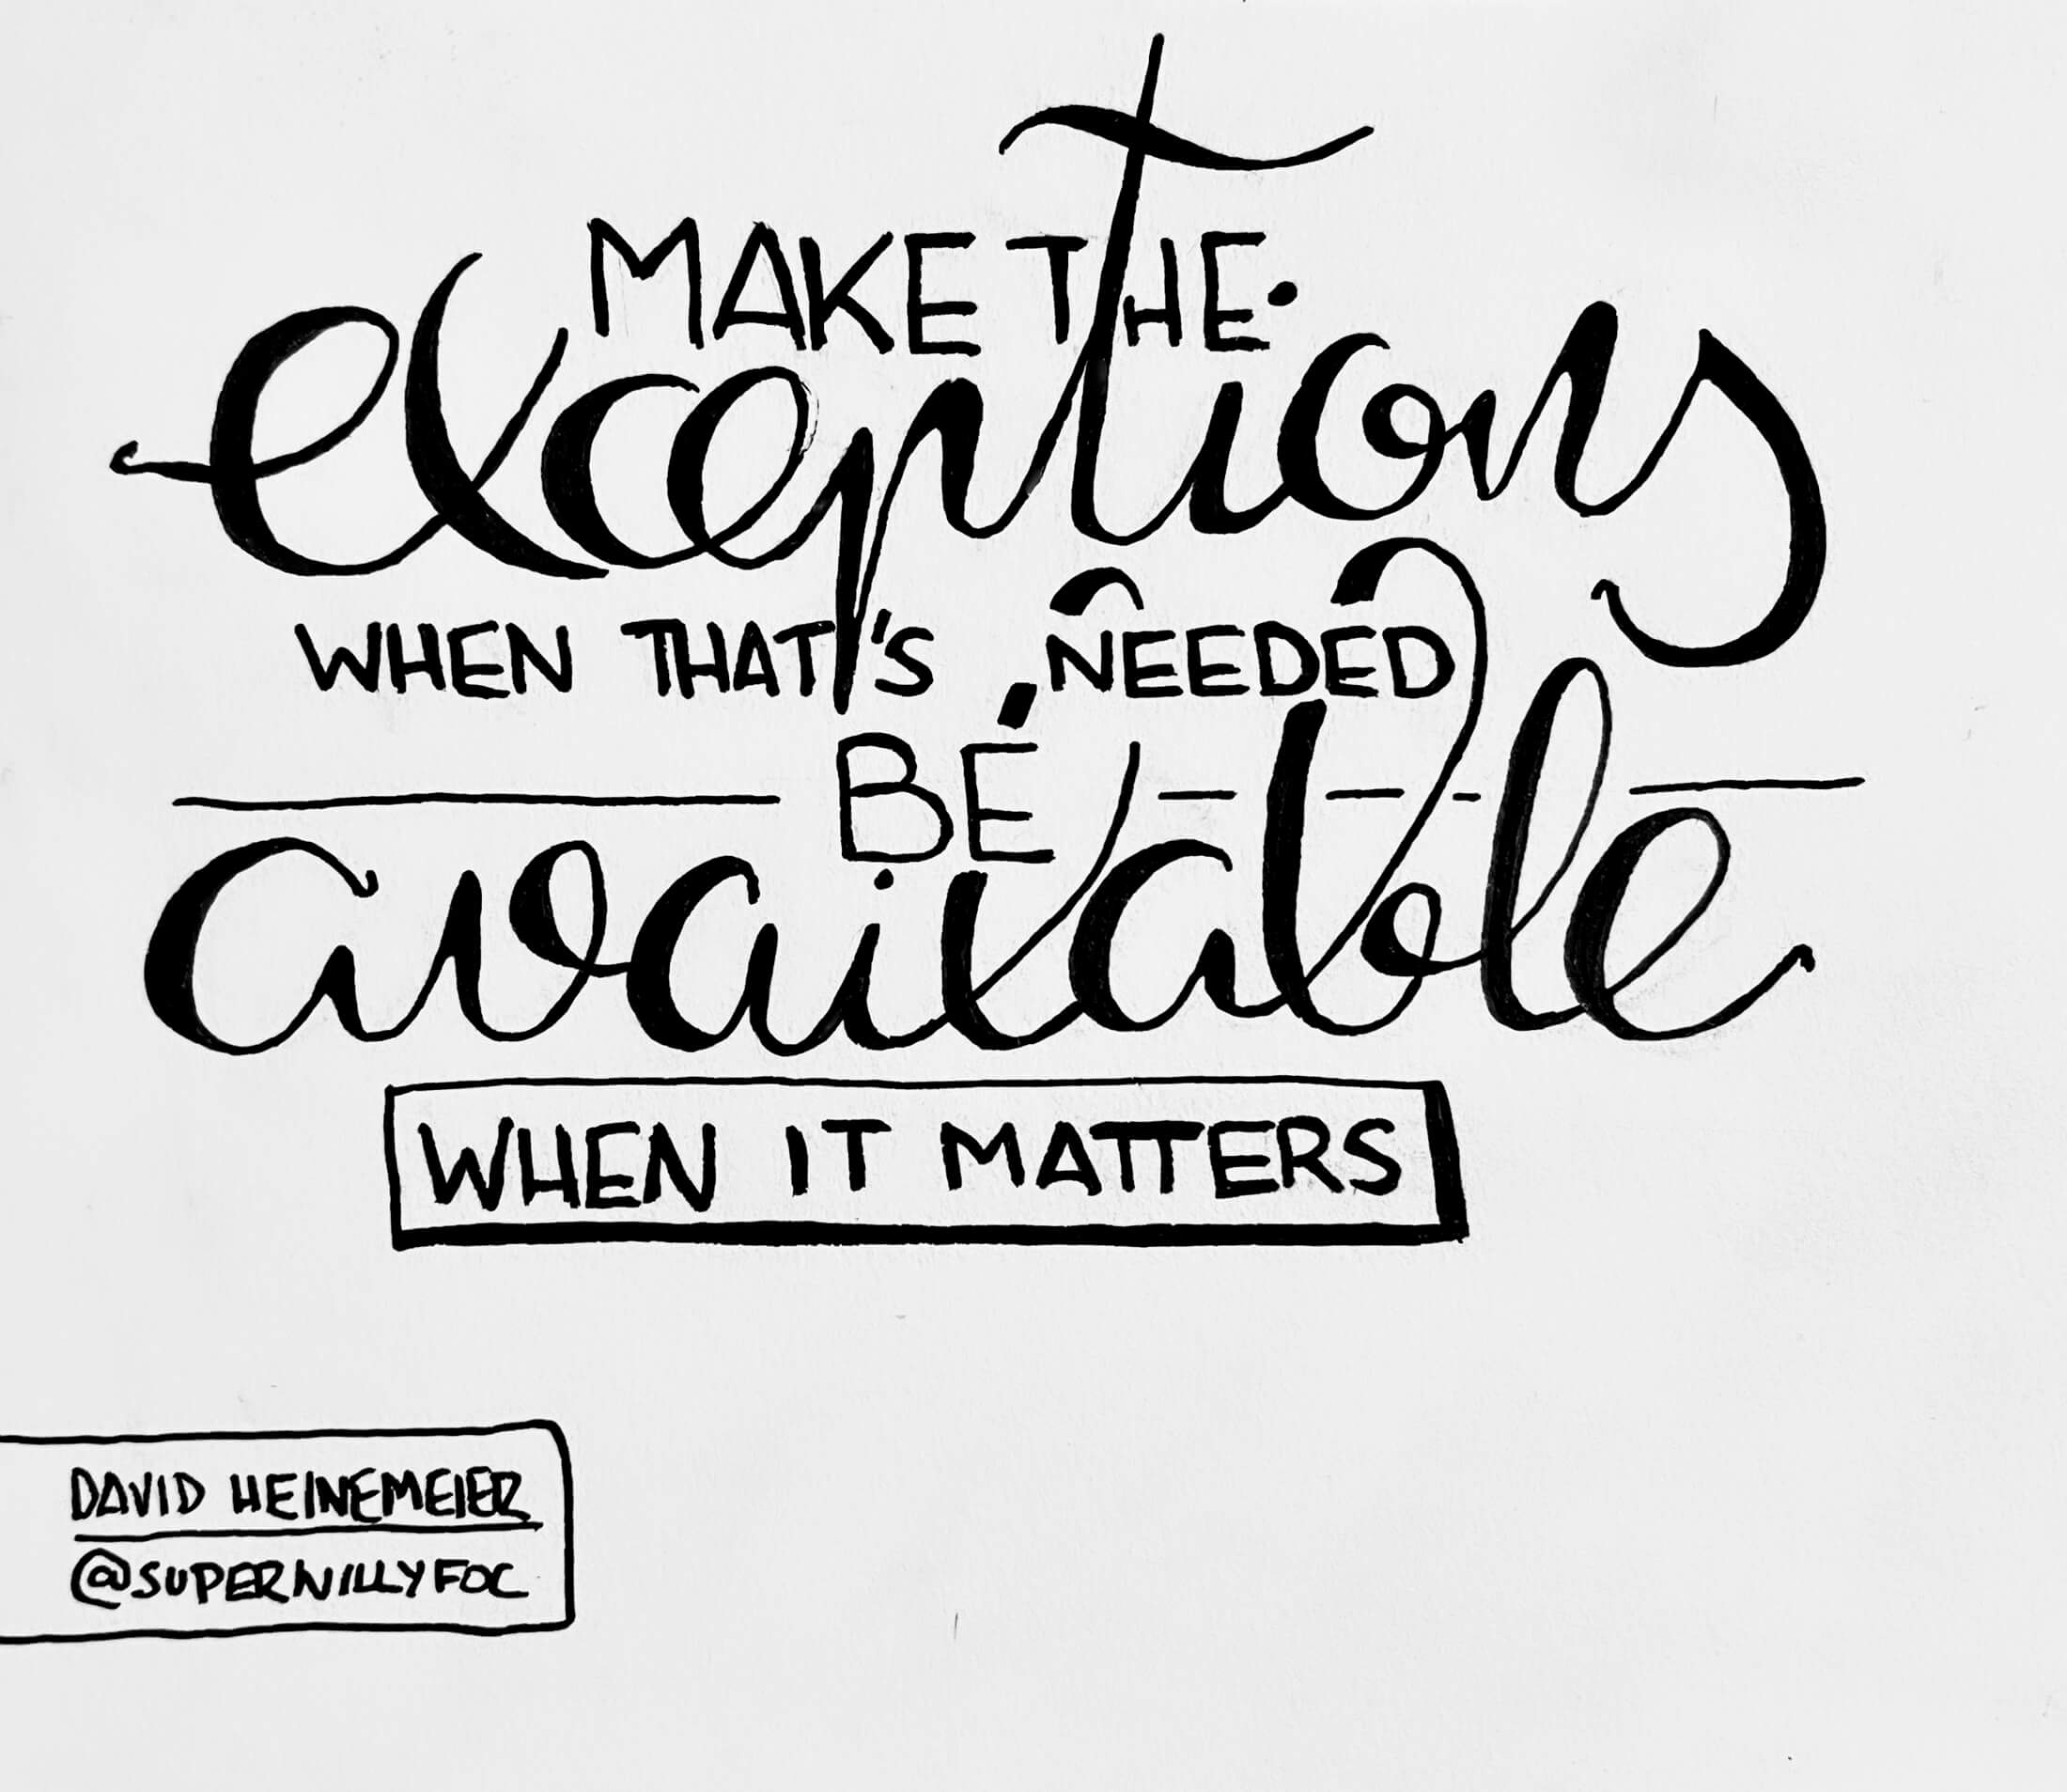 MAKE THE
exceptions
WHEN THAT'S NEEDED
BE
available
WHEN IT MATTERS
DAVID HEINEMEIER
@SUPERWILLYFOC